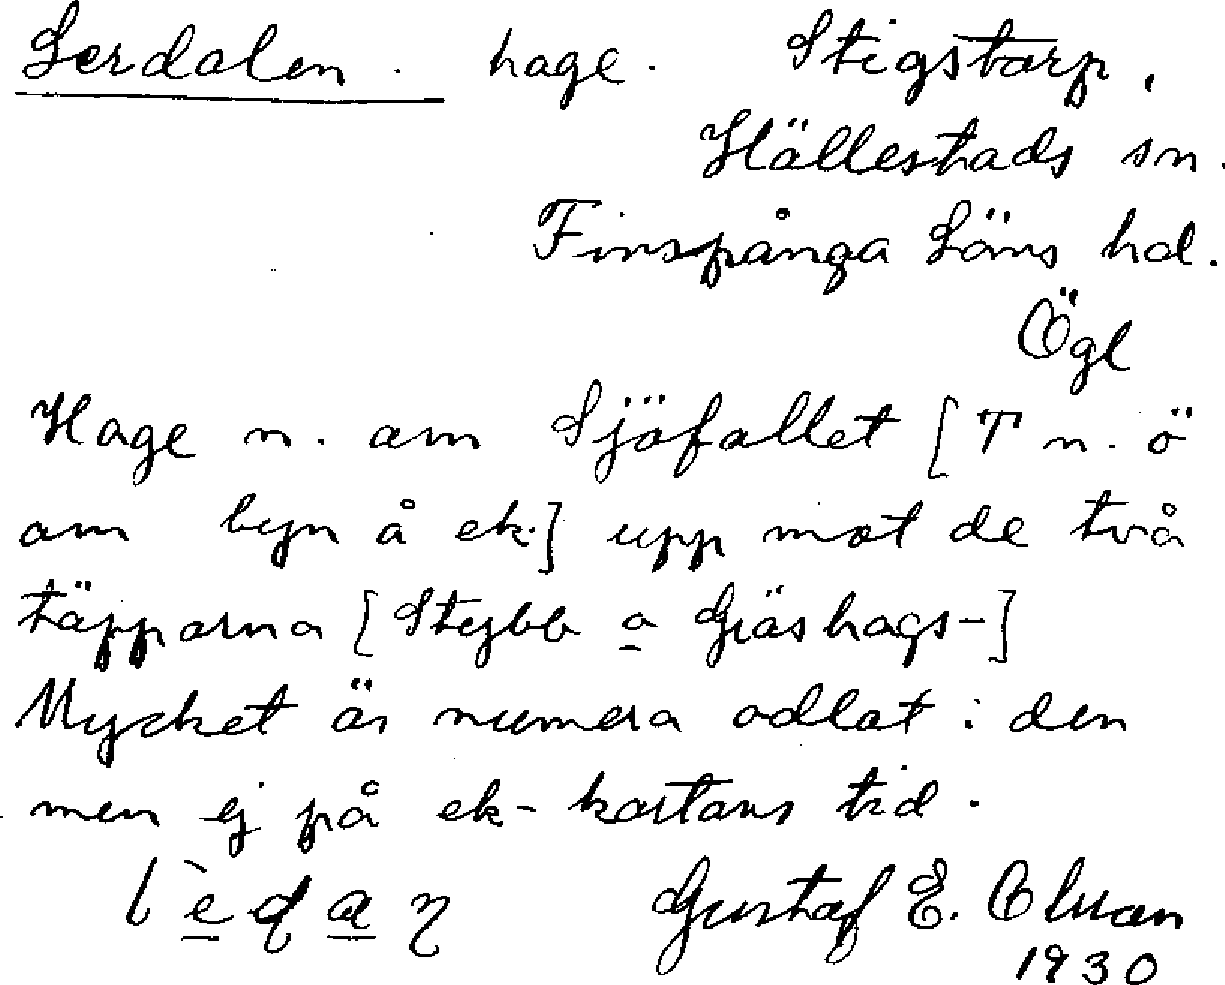 Lerdalen. hage. Stigstorp,
Hällestads sn.
Finspånga Läns hd.
Ögl
Hage n. om Sjöfallet [T n. ö
om byn å ek.] upp mot de två
täpporna [Stybb o Gräshags-]
Mycket är numera odlat i den
men ej på ek-kartans tid.
Gustaf E. Olson
1930